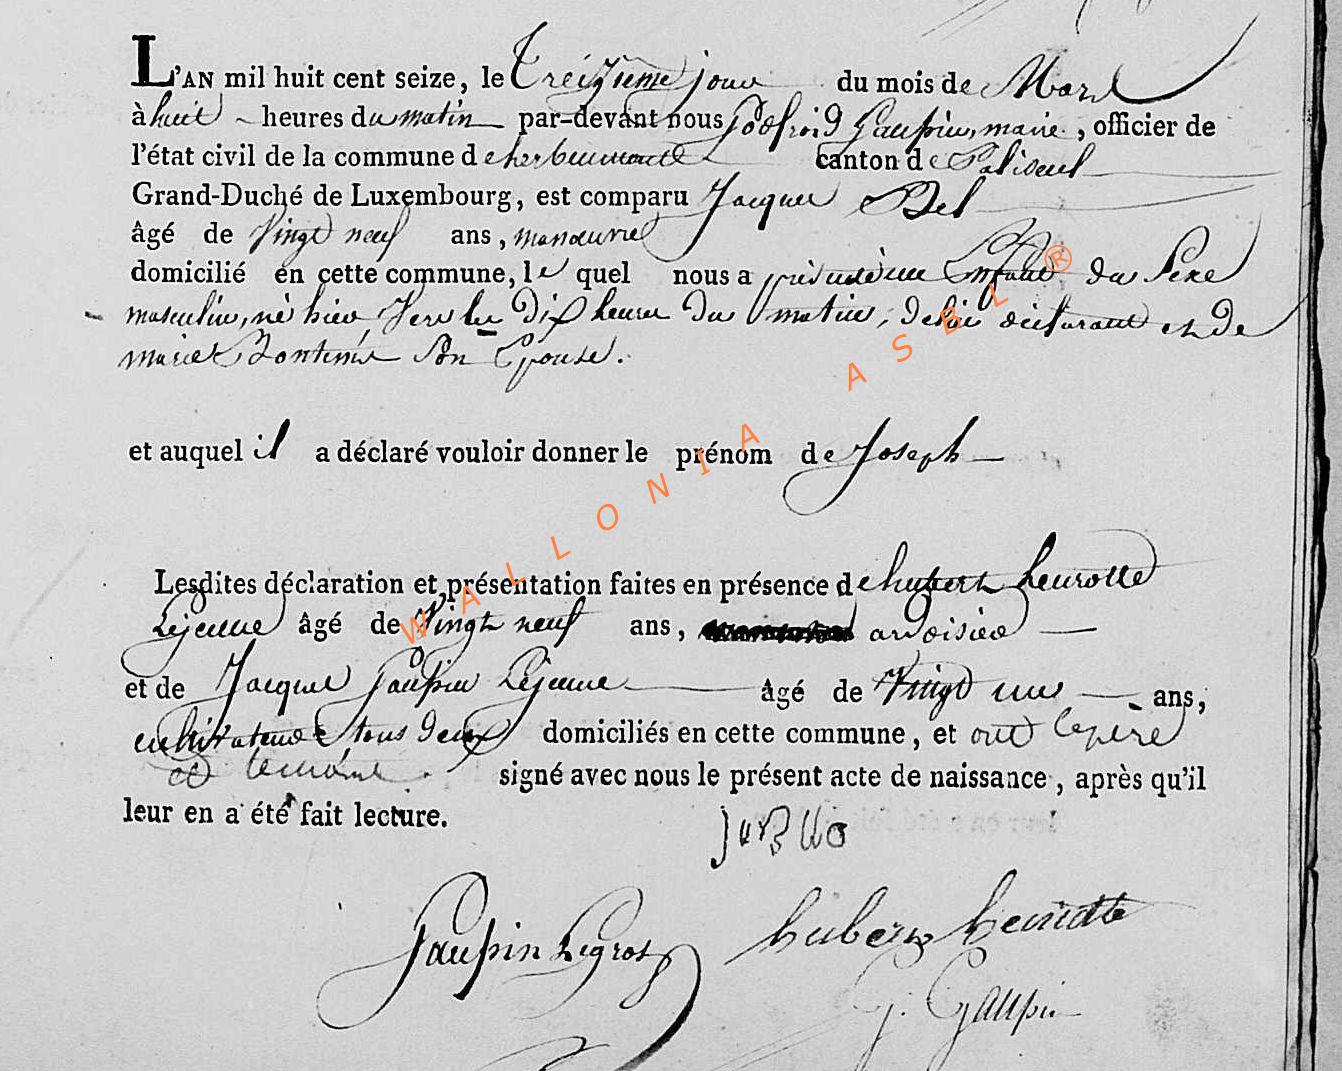 L'AN mil huit cent seize, le Treizieme jour du mois de Mars
à huit heures du matin par-devant nous Godfroid Gaupin, maire, officier de
l'état civil de la commune d'herbeumont canton de Paliseul
Grand-Duché de Luxembourg, est comparu Jacques Bel
âgé de Vingt neuf ans, manoeuvre
domicilié en cette commune, le quel nous a présenté une Enfant du Sexe
masculin, né hier, Vers les dix heures du matin, de lui déclarant et de
marie Bontems Son Epouse.
et auquel il a déclaré vouloir donner le prénom de Joseph
Lesdites déclaration et présentation faites en présence de hubert heurotte
Lejeune âgé de Vingt neuf ans, ardoisier
et de Jacques Gaupin Lejeune âgé de Vingt un ans,
cultivateur tous deux domiciliés en cette commune, et ont le père
et signé avec nous le présent acte de naissance, après qu'il
leur en a été fait lecture.
Gaupin Legros hubert
J. Gaupin
WALLONIA ASBL ®